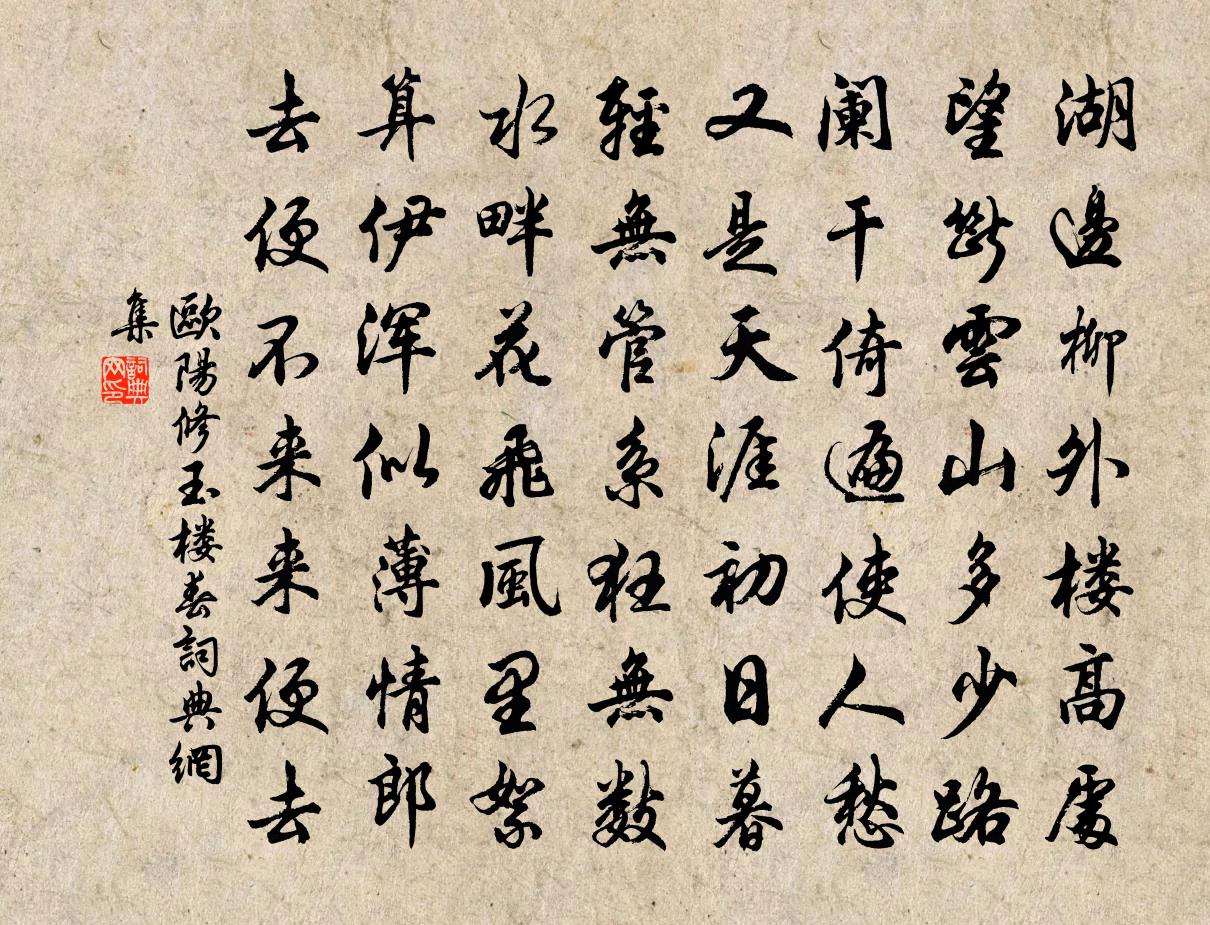 湖邊柳外楼高處
望斷雲山多少路
阑干倚遍使人愁
又是天涯初日暮
輕無管系狂無數
水畔花飛風里絮
算伊浑似薄情郎
去便不来来便去
歐陽修玉楼春詞典網
集
詞典
网印